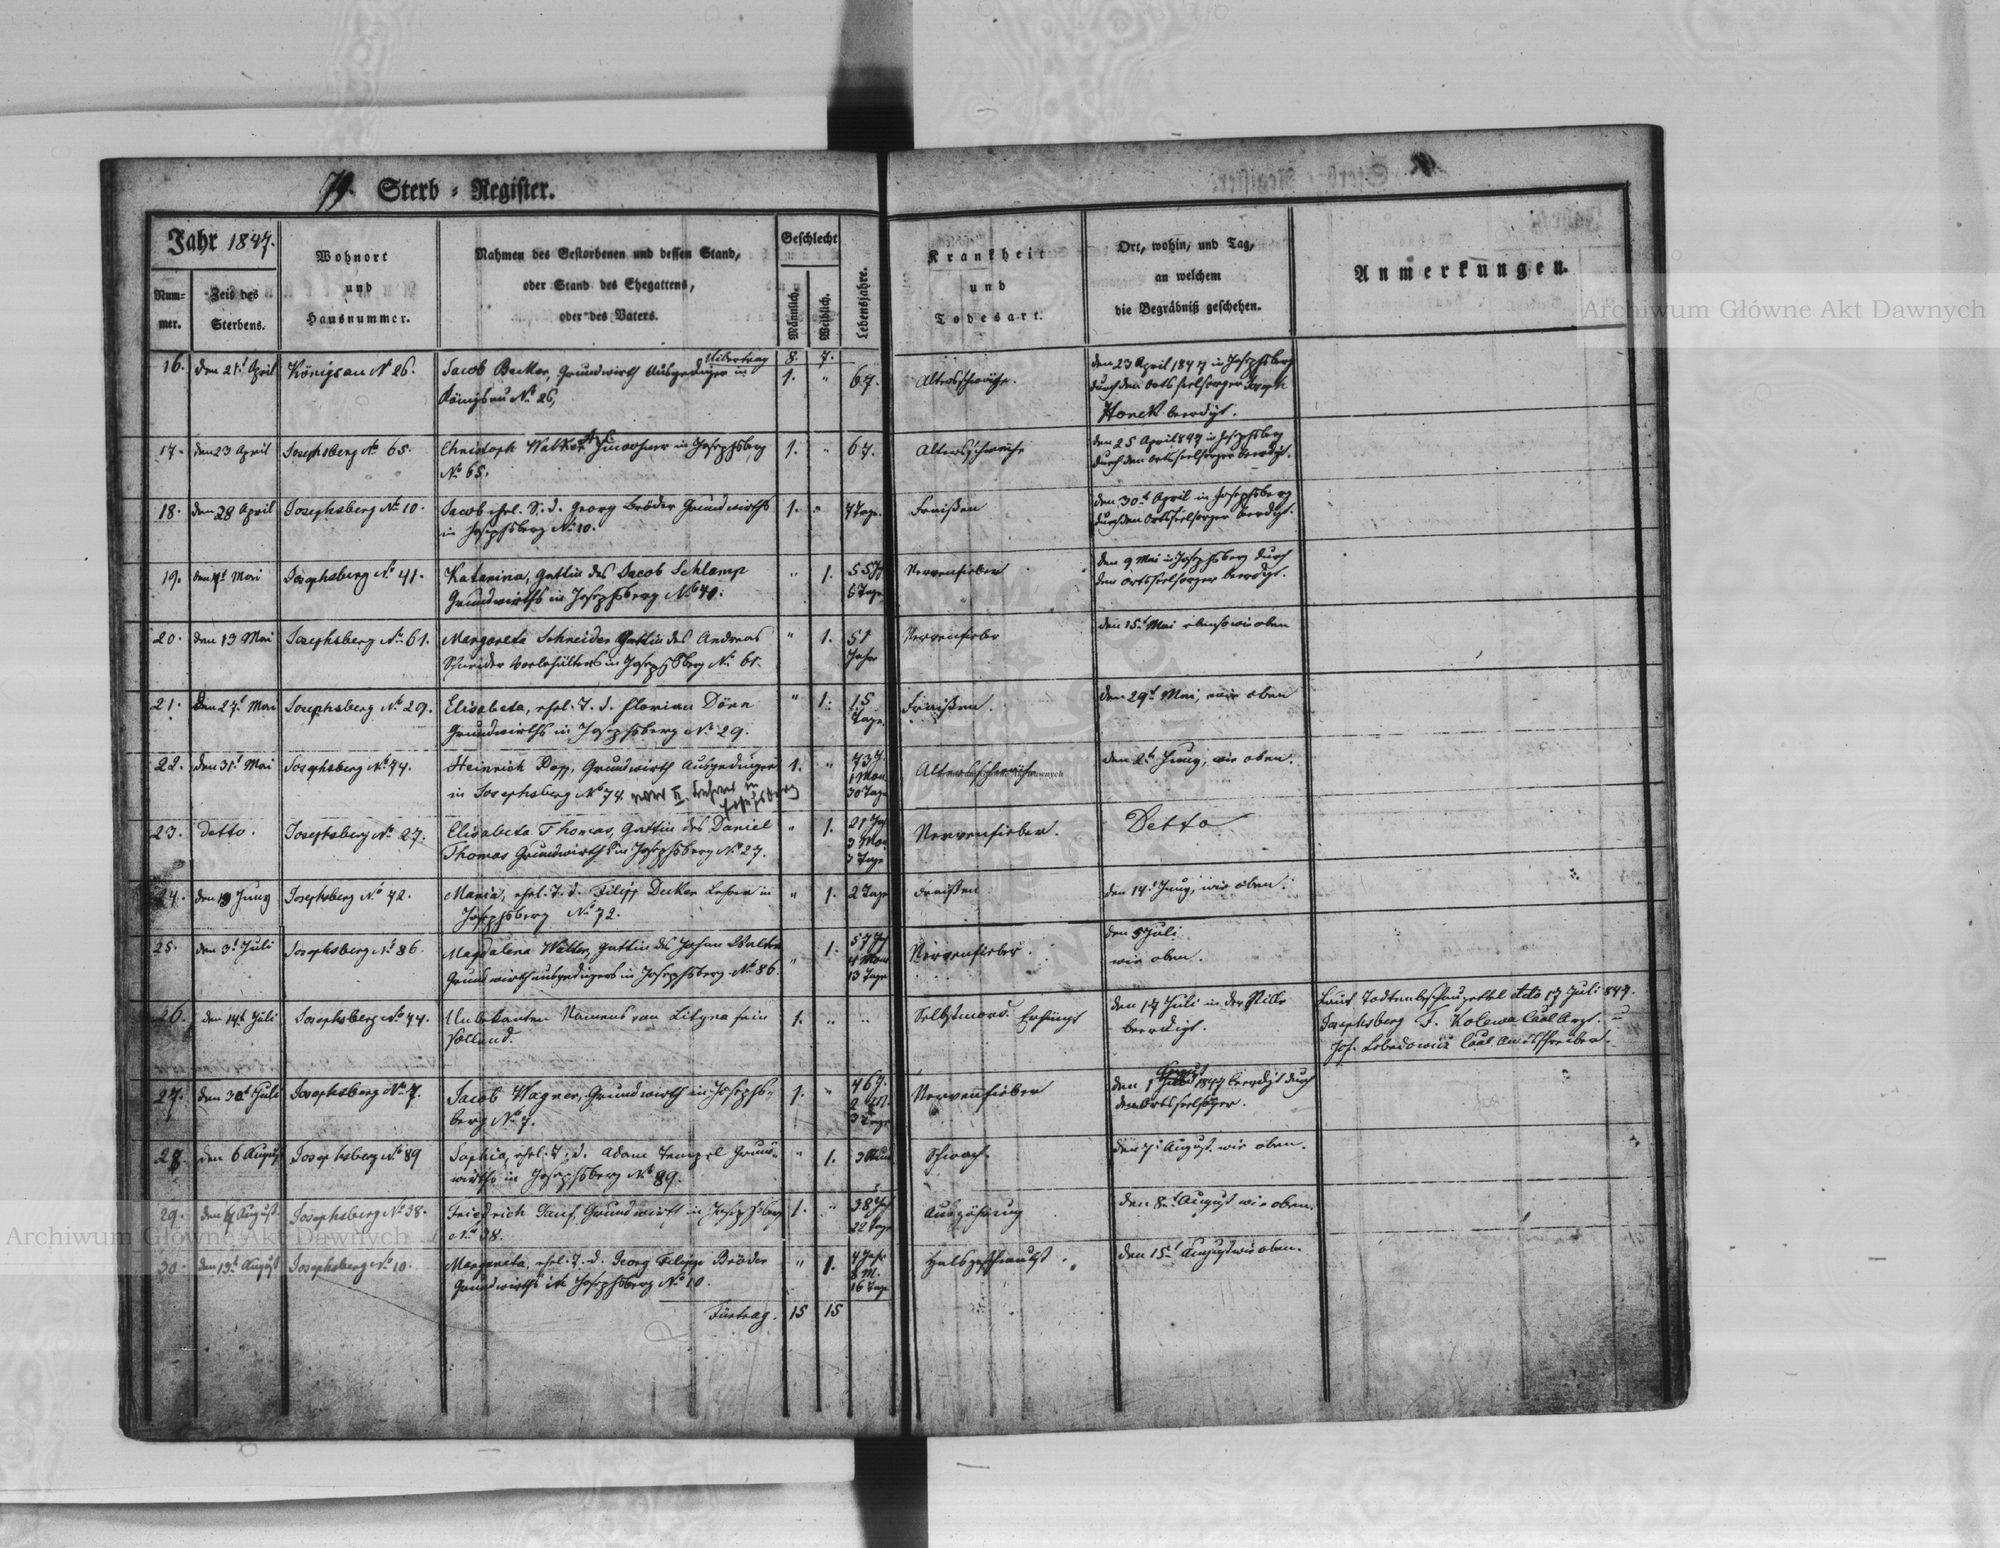 79. Sterb - Register.
Jahr 1847.
Num-
mer.
Zeit des
Sterbens.
Wohnort
und
Hausnummer.
Nahmen des Gestorbenen und dessen Stand,
oder Stand des Ehegattens,
oder des Vaters.
Geschlecht
Männlich.
Weiblich.
Lebensjahre.
Krankheit
und
Todesart.
Ort, wohin, und Tag,
an welchem
die Begräbniß geschehen.
Anmerkungen.
Uibertrag 8. 7.
16. den 21t April Königsau No 26. Jacob Becker, Grundwirth Ausgedinger in 1. " 67. Altersschwäche. den 23 April 1847 in Josephsberg
Königsau No 26, durch den Ortsseelsorger Joseph
Honek beerdigt.
17. den 23 April Josephsberg No 65. Christoph Walker, Inwohner in Josephsberg 1. " 67. Altersschwäche den 25 April 847 in Josephsberg
No 65. durch den Ortsseelsorger beerdigt.
18. den 28 April Josephsberg No 10. Jacob ehel. S. d. Georg Bröder Grundwirths 1. " 7 Tage. Fraißen den 30t April in Josephsberg
in Josephsberg No 10. durch den Ortsseelsorger beerdigt.
19. Mai Josephsberg No 41. Katarina, Gattin des Jacob Schlamp " 1. 55 J Nervenfieber den 9 Mai in Josephsberg durch
Grundwirths in Josephsberg No 6 Tage den Ortsseelsorger beerdigt.
20. den 13 Mai Josephsberg No 61. Margareta Schneider Gattin des Andreas " 1. 51 Nervenfieber den 15t Mai ebenso wie oben
Schneider in Josephsberg No 61. Jahr
21. den 27t Mai Josephsberg No 29. Elisabeta, ehel. T. d. Florian Dörr " 1. 15 Fraißen. den 29t Mai, wie oben
Grundwirths in Josephsberg No 29. Tage.
22. den 31t Mai Josephsberg No 74. Heinrich Grundwirth Ausgedinger 1. " 73 J. Altersschwäche den 2t Juny, wie oben.
in Josephsberg No 74. war Lehrer in 1 Mon
Josefsberg 30 Tage
23. detto. Josephsberg No 27. Elisabeta Thomas, Gattin des Daniel " 1. 21 Nervenfieber. Detto
Thomas Grundwirths in Josephsberg No 27. 3 Mon
3 Tage
24. den Juny Josephsberg No 72. Maria, ehel. T. d. Filipp Decker Lehrer in " 1. 2 Tage Fraißen den 14t Juny, wie oben.
Josephsberg No 72.
25. den 3t Juli Josephsberg No 86. Magdalena Walter, Gattin des Johan Walter " 1. 57 J Nervenfieber. den 5 Juli
Grundwirthausgedingers in Josephsberg No 86 4 Mon wie oben.
13 Tage
26. den 14t Juli Josephsberg No 44. Unbekanten Namens von Lityna sein 1. " " Selbstmord. Erhängt den 17 Juli in der Stille Laut Todtenbeschauzettel dto 17 Juli 847.
sollend. beerdigt. Josephsberg F. Kolewa Caal Arzt. u
Jos. Lebedowicz Caal Amtsschreiber.
27. den 30t Juli Josephsberg No 7. Jacob Wagner, Grundwirth in Josephs- 1. " 46 J. Nervenfieber den 1 August 1847 beerdigt durch
berg No 7. 2 M. den Ortsseelsorger.
3 Tage
28. den 6 August Josephsberg No 89 Sophia, ehel. T. d. Adam Tempel Grund- " 1. 3 Schwach. den 7t August wie oben.
wirths in Josephsberg No 89.
29. den August Josephsberg No 38. Friedrich Grundwirth in Josephsberg 1. " 38 Auszehrung den 8t August wie oben.
No 38. 22 Tage
30. den 13t August Josephsberg No 10. Margareta, ehel. T. d. Georg Filipp Bröder " 1. 4 Jahr den 15t August wie oben.
Grundwirths in Josephsberg No 10. 8 M.
16 Tage
Fürtrag. 15 15
Archiwum Główne Akt Dawnych
Archiwum Główne Akt Dawnych